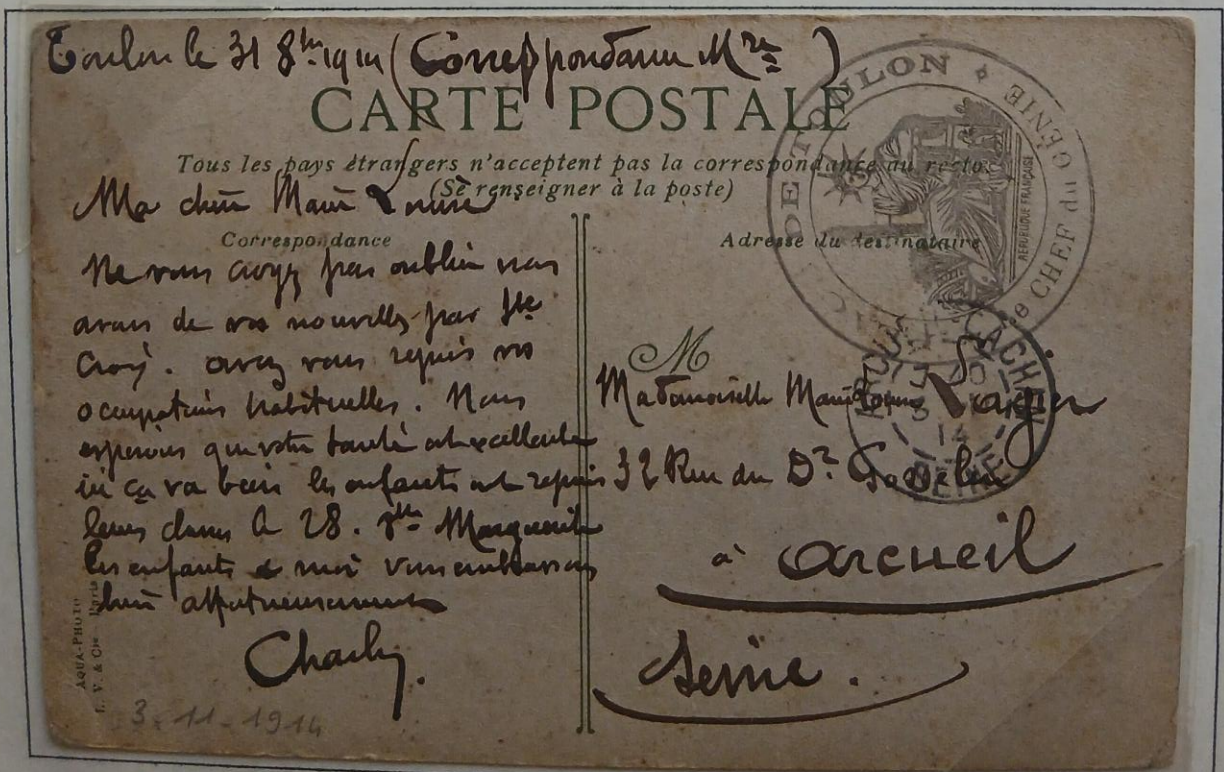 Toulon le 31 8bre 1914 (Correspondance Mre)
CARTE POSTALE
Tous les pays étrangers n'acceptent pas la correspondance au recto
(Se renseigner à la poste)
Correspondance
Ma chère Marie Louise
Ne vous croyez pas oubliée nous
avons de vos nouvelles par Ste
Croix. avez vous repris vos
occupations habituelles. Nous
espérons que votre santé est excellente
ici ça va bien les enfants ont repris
leurs classes le 28. 7bre Marguerite
les enfants & moi vous embrassons
bien affectueusement
Charly.
AQUA-PHOTO
L. V. & Cie Paris
3-11-1914
Adresse du destinataire
M
Mademoiselle Marie Louise
32 Rue du Dr
à Arcueil
Seine.
DE TOULON
CHEF du GÉNIE
RÉPUBLIQUE FRANÇAISE
CACHAN
14
SEINE